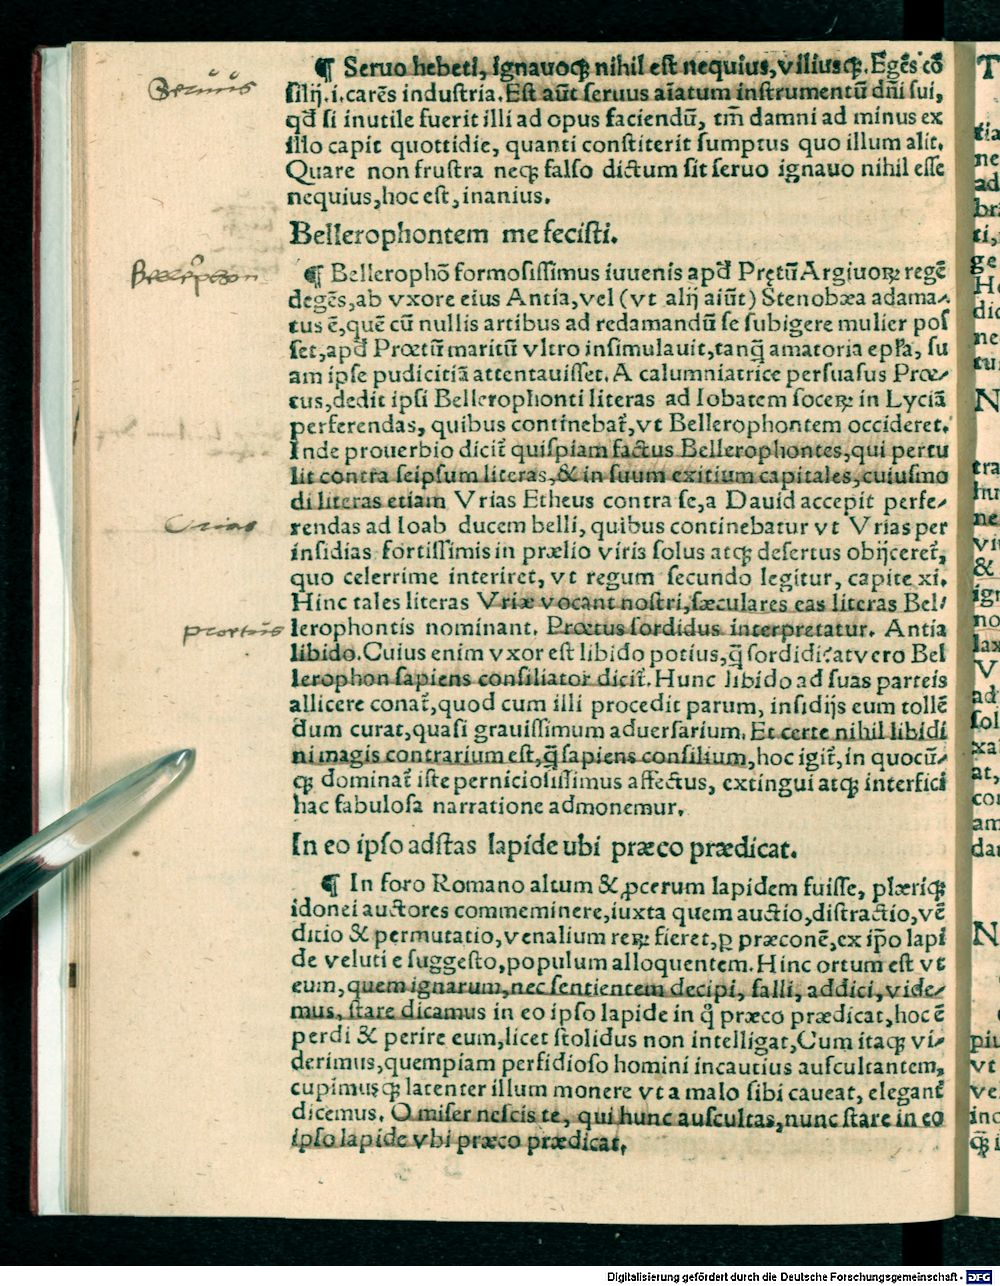 ¶ Seruo hebeti, ignauoq̃ nihil est nequius, viliusq̃. Egẽs cõ
silij .i. carẽs industria. Est aũt seruus aĩatum instrumentũ dñi sui,
qđ si inutile fuerit illi ad opus faciendũ, tm̃ damni ad minus ex
illo capit quottidie, quanti constiterit sumptus quo illum alit.
Quare non frustra neq̃ falso dictum sit seruo ignauo nihil esse
nequius, hoc est, inanius.
Seruus
Bellerophontem me fecisti.
¶ Bellerophõ formosissimus iuuenis apđ Prętũ Argiuoꝝ regẽ
degẽs, ab vxore eius Antia, vel (vt alij aiũt) Stenobæa adama-
tus ẽ, quẽ cũ nullis artibus ad redamandũ se subigere mulier pos
set, apđ Prœtũ maritũ vltro insimulauit, tanq̃ amatoria epľa, su
am ipse pudicitiã attentauisset. A calumniatrice persuasus Prœ-
tus, dedit ipsi Bellerophonti literas ad Iobatem soceꝝ in Lyciã
perferendas, quibus continebat̃, vt Bellerophontem occideret.
Inde prouerbio dicit̃ quispiam factus Bellerophontes, qui pertu
lit contra seipsum literas, & in suum exitium capitales, cuiusmo
di literas etiam Vrias Etheus contra se, a Dauid accepit perfe-
rendas ad Ioab ducem belli, quibus continebatur vt Vrias per
insidias fortissimis in prælio viris solus atq̃ desertus obijceret̃,
quo celerrime interiret, vt regum secundo legitur, capite xi.
Hinc tales literas Vriæ vocant nostri, sæculares eas literas Bel-
lerophontis nominant. Prœtus sordidus interpretatur. Antia
libido. Cuius enim vxor est libido potius, q̃ sordidi? at vero Bel
lerophon sapiens consiliator dicit̃. Hunc libido ad suas parteis
allicere conat̃, quod cum illi procedit parum, insidijs eum tollẽ
dum curat, quasi grauissimum aduersarium. Et certe nihil libidi
ni magis contrarium est, q̃ sapiens consilium, hoc igit̃, in quocũ-
q̃ dominat̃ iste perniciosissimus affectus, extingui atq̃ interfici
hac fabulosa narratione admonemur.
Vrias
Proetus
In eo ipso adstas lapide ubi præco prædicat.
¶ In foro Romano altum & ꝓcerum lapidem fuisse, plæriq̃
idonei auctores commeminere, iuxta quem auctio, distractio, vẽ
ditio & permutatio, venalium reꝝ fieret, ꝑ præconẽ, ex ip̃o lapi
de veluti e suggesto, populum alloquentem. Hinc ortum est vt
eum, quem ignarum, nec sentientem decipi, falli, addici, vide-
mus, stare dicamus in eo ipso lapide in q̊ præco prædicat, hoc ẽ
perdi & perire eum, licet stolidus non intelligat, Cum itaq̃ vi-
derimus, quempiam perfidioso homini incautius auscultantem,
cupimusq̃ latenter illum monere vt a malo sibi caueat, elegant̃
dicemus. O miser nescis te, qui hunc auscultas, nunc stare in eo
ipso lapide vbi præco prædicat.
Digitalisierung gefördert durch die Deutsche Forschungsgemeinschaft - DFG